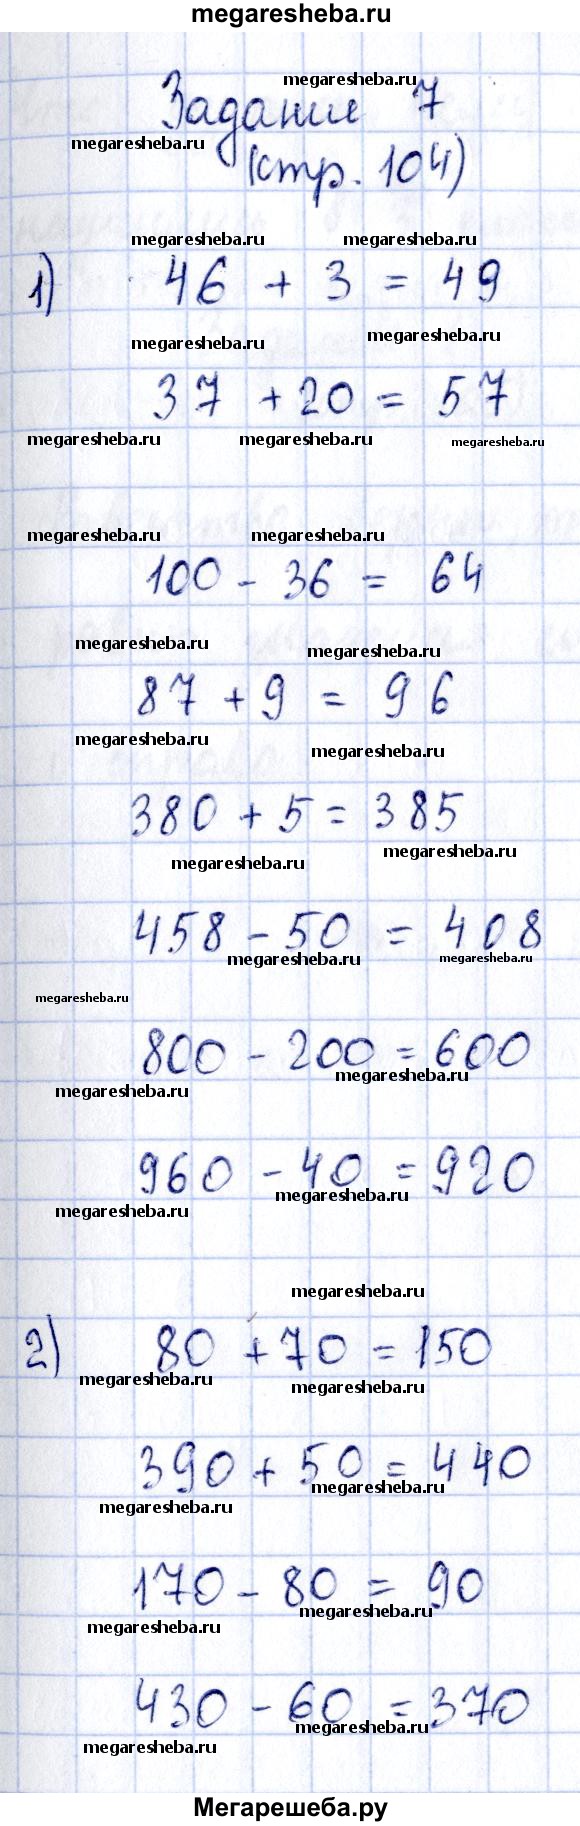 megaresheba.ru
megaresheba.ru
Задание 7
megaresheba.ru
(стр. 104)
megaresheba.ru megaresheba.ru
1) 46 + 3 = 49
megaresheba.ru megaresheba.ru
37 + 20 = 57
megaresheba.ru megaresheba.ru megaresheba.ru
megaresheba.ru megaresheba.ru
100 - 36 = 64
megaresheba.ru megaresheba.ru
87 + 9 = 96
megaresheba.ru megaresheba.ru
380 + 5 = 385
megaresheba.ru megaresheba.ru
458 - 50 = 408
megaresheba.ru megaresheba.ru
megaresheba.ru
800 - 200 = 600
megaresheba.ru megaresheba.ru
960 - 40 = 920
megaresheba.ru megaresheba.ru
megaresheba.ru
2) 80 + 70 = 150
megaresheba.ru megaresheba.ru
390 + 50 = 440
megaresheba.ru megaresheba.ru
170 - 80 = 90
megaresheba.ru megaresheba.ru
430 - 60 = 370
megaresheba.ru megaresheba.ru
Мегарешеба.ру